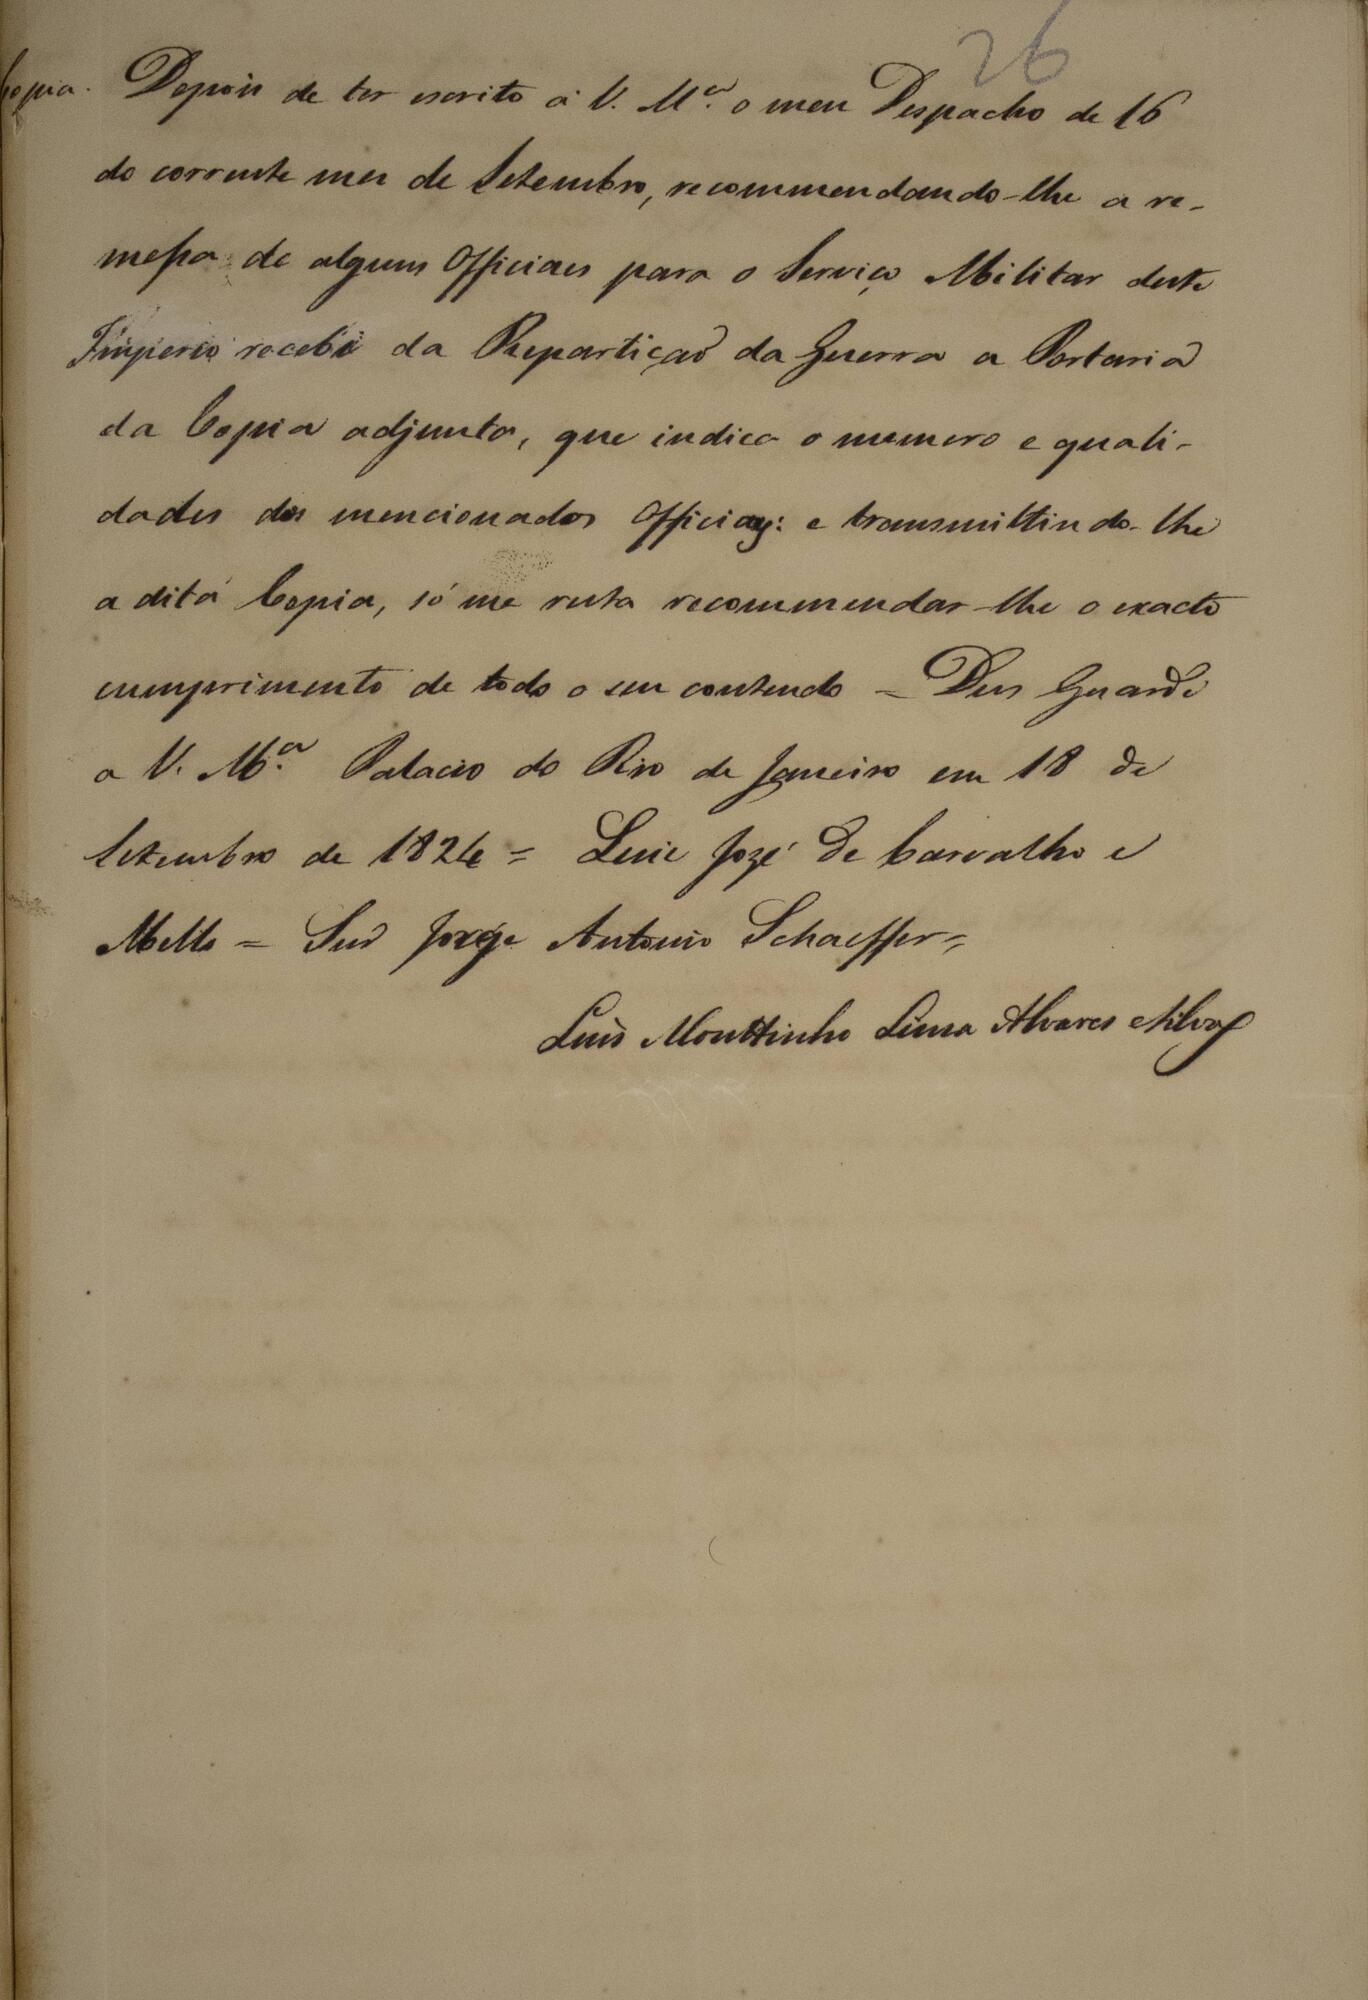 26
Copia. Depois de ter escrito á V. M.ce o meu Despacho de 16
do corrente mez de Setembro, recommendando-lhe a re-
messa de alguns Officiaes para o Serviço Militar deste
Imperio recebi da Repartiçaõ da Guerra a Portaria
da Copia adjunta, que indica o numero e quali-
dades dos mencionados Officiaes: e transmittindo-lhe
a dita Copia, só me resta recommendar-lhe o exacto
cumprimento de todo o seu contendo = Deus Guarde
a V. M.ce Palacio do Rio de Janeiro em 18 de
Setembro de 1824 = Luiz Jozé de Carvalho e
Mello = Snr Jorge Antonio Schaeffer =
Luis Mouttinho Lima Alvares e Silva